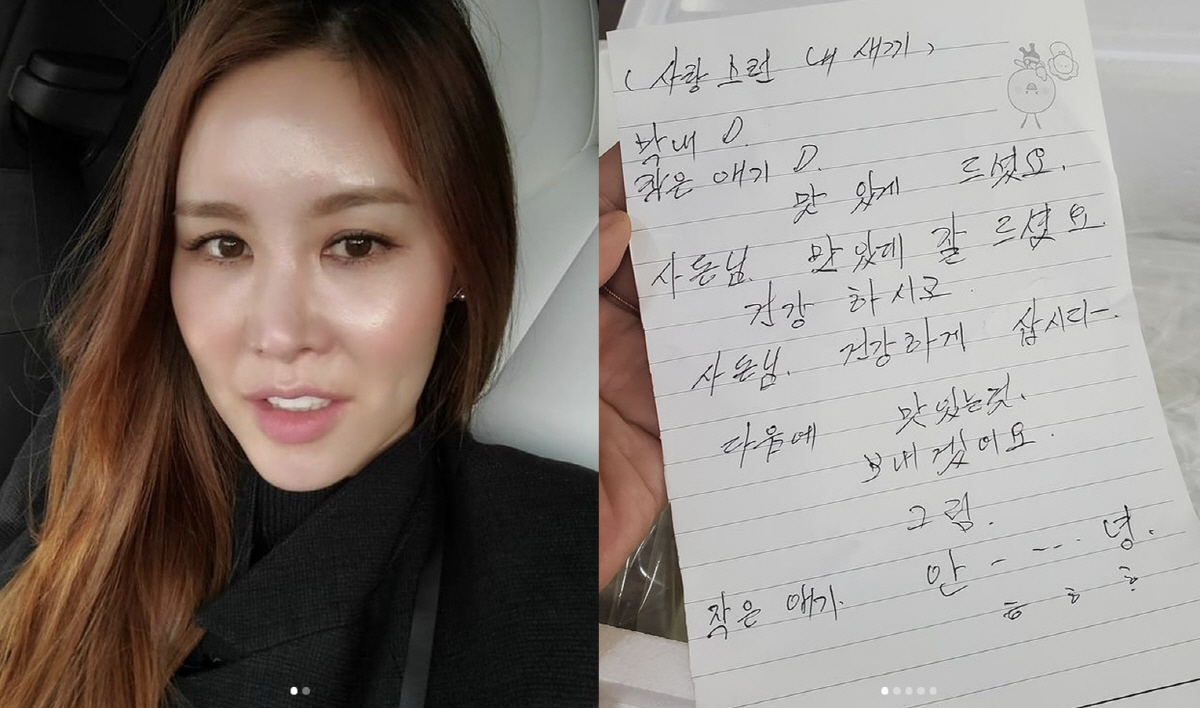 (사랑스런 내 새끼)
막내 D.
작은 애기 D.
맛 있게 드셨요.
사돈님 맛있데 잘 드셨요.
건강 하시로
사돈님. 건강하게 삽시다-.
다음에 맛있는것.
보내겠어요.
그럼.
안 - --- 녕.
작은 애기. ㅎ ㅎ ㅎ